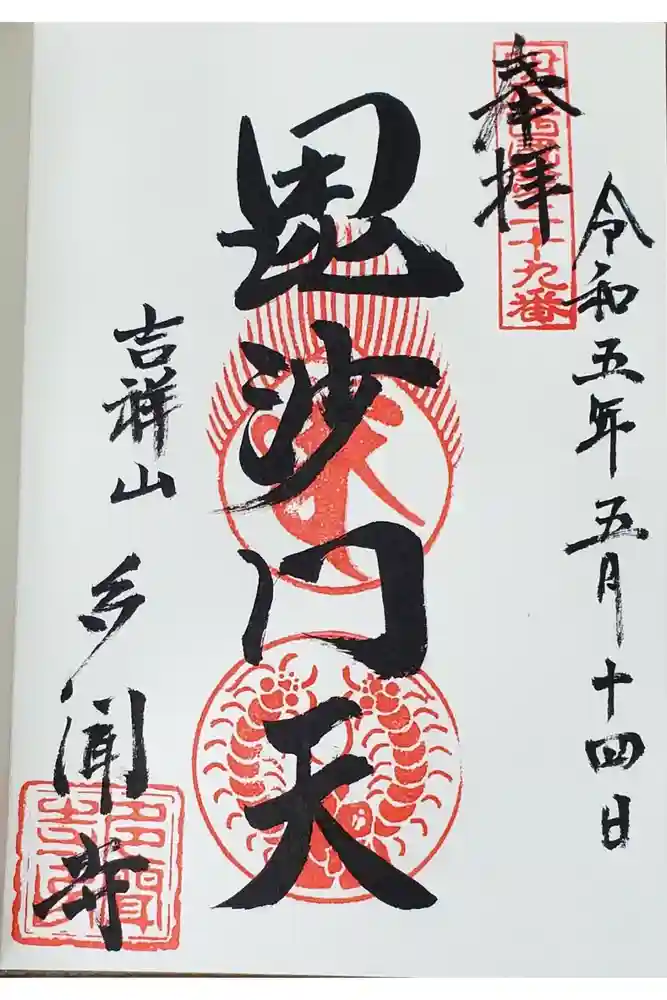 令和五年五月十四日
奉拝
二十九番
毘沙門天
吉祥山
多聞寺